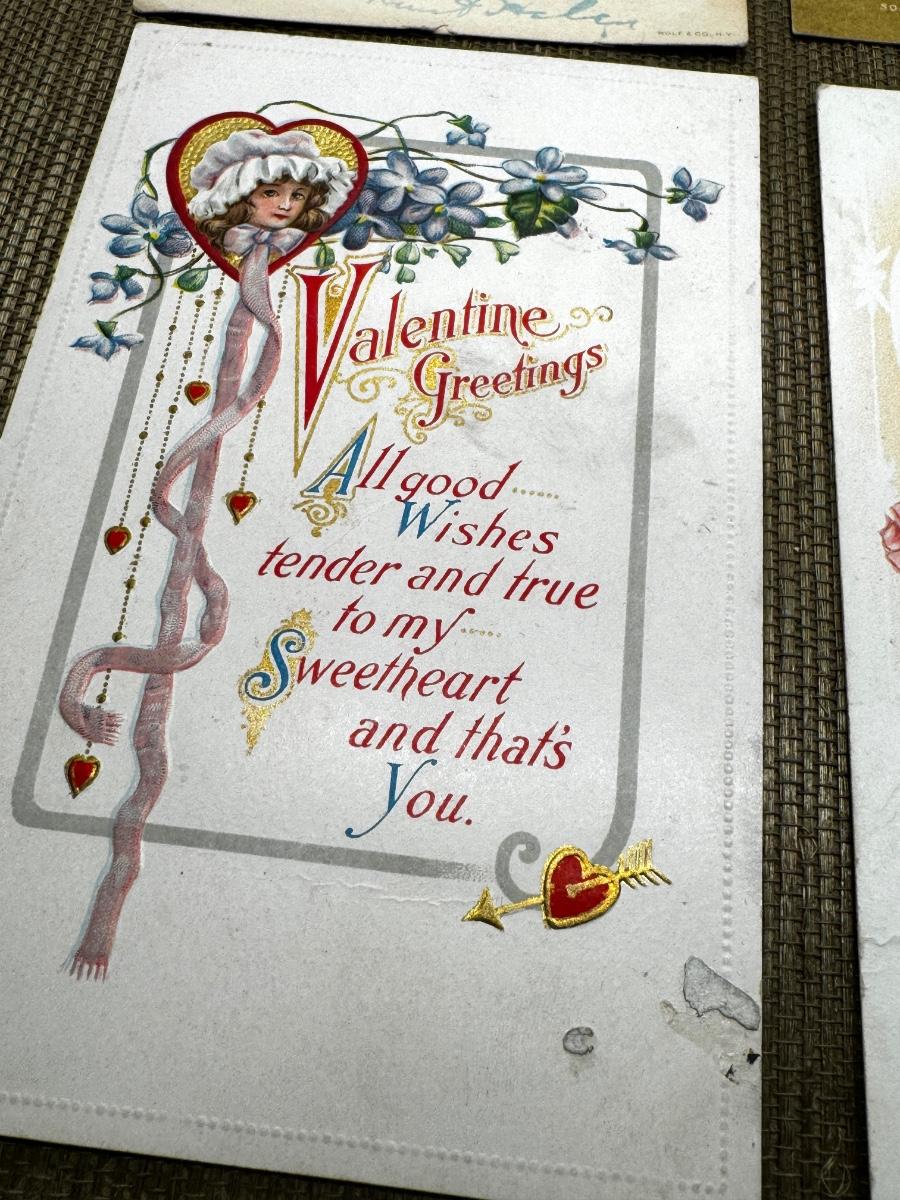 WOLF & CO., N.Y.
Valentine
Greetings
All good......
Wishes
tender and true
to my.....
Sweetheart
and that's
You.